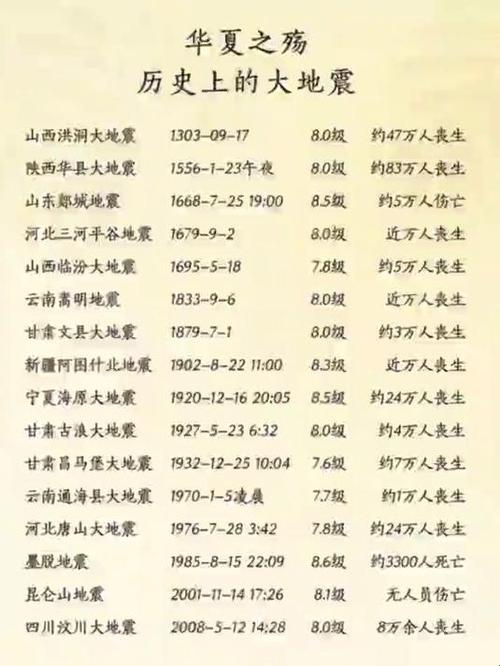 华夏之殇
历史上的大地震
山西洪洞大地震 1303-09-17 8.0级 约47万人丧生
陕西华县大地震 1556-1-23午夜 8.0级 约83万人丧生
山东郯城地震 1668-7-25 19:00 8.5级 约5万人伤亡
河北三河平谷地震 1679-9-2 8.0级 近万人丧生
山西临汾大地震 1695-5-18 7.8级 约5万人丧生
云南嵩明地震 1833-9-6 8.0级 近万人丧生
甘肃文县大地震 1879-7-1 8.0级 约3万人丧生
新疆阿图什北地震 1902-8-22 11:00 8.3级 近万人丧生
宁夏海原大地震 1920-12-16 20:05 8.5级 约24万人丧生
甘肃古浪大地震 1927-5-23 6:32 8.0级 约4万人丧生
甘肃昌马堡大地震 1932-12-25 10:04 7.6级 约7万人丧生
云南通海县大地震 1970-1-5凌晨 7.7级 约1万人丧生
河北唐山大地震 1976-7-28 3:42 7.8级 约24万人丧生
墨脱地震 1985-8-15 22:09 8.6级 约3300人死亡
昆仑山地震 2001-11-14 17:26 8.1级 无人员伤亡
四川汶川大地震 2008-5-12 14:28 8.0级 8万余人丧生